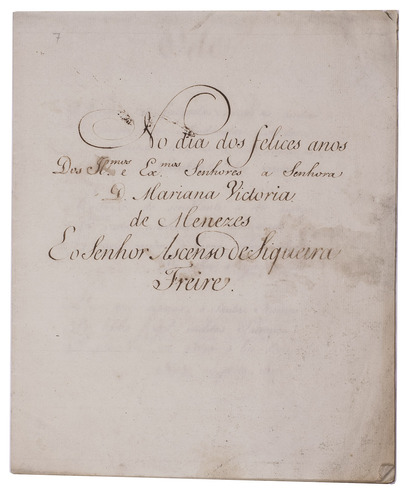 7
No dia dos felices anos
Dos Il.mos e Ex.mos Senhores a Senhora
D. Mariana Victoria
de Menezes
E o Senhor Asçenso de Siqueira
Freire.
7